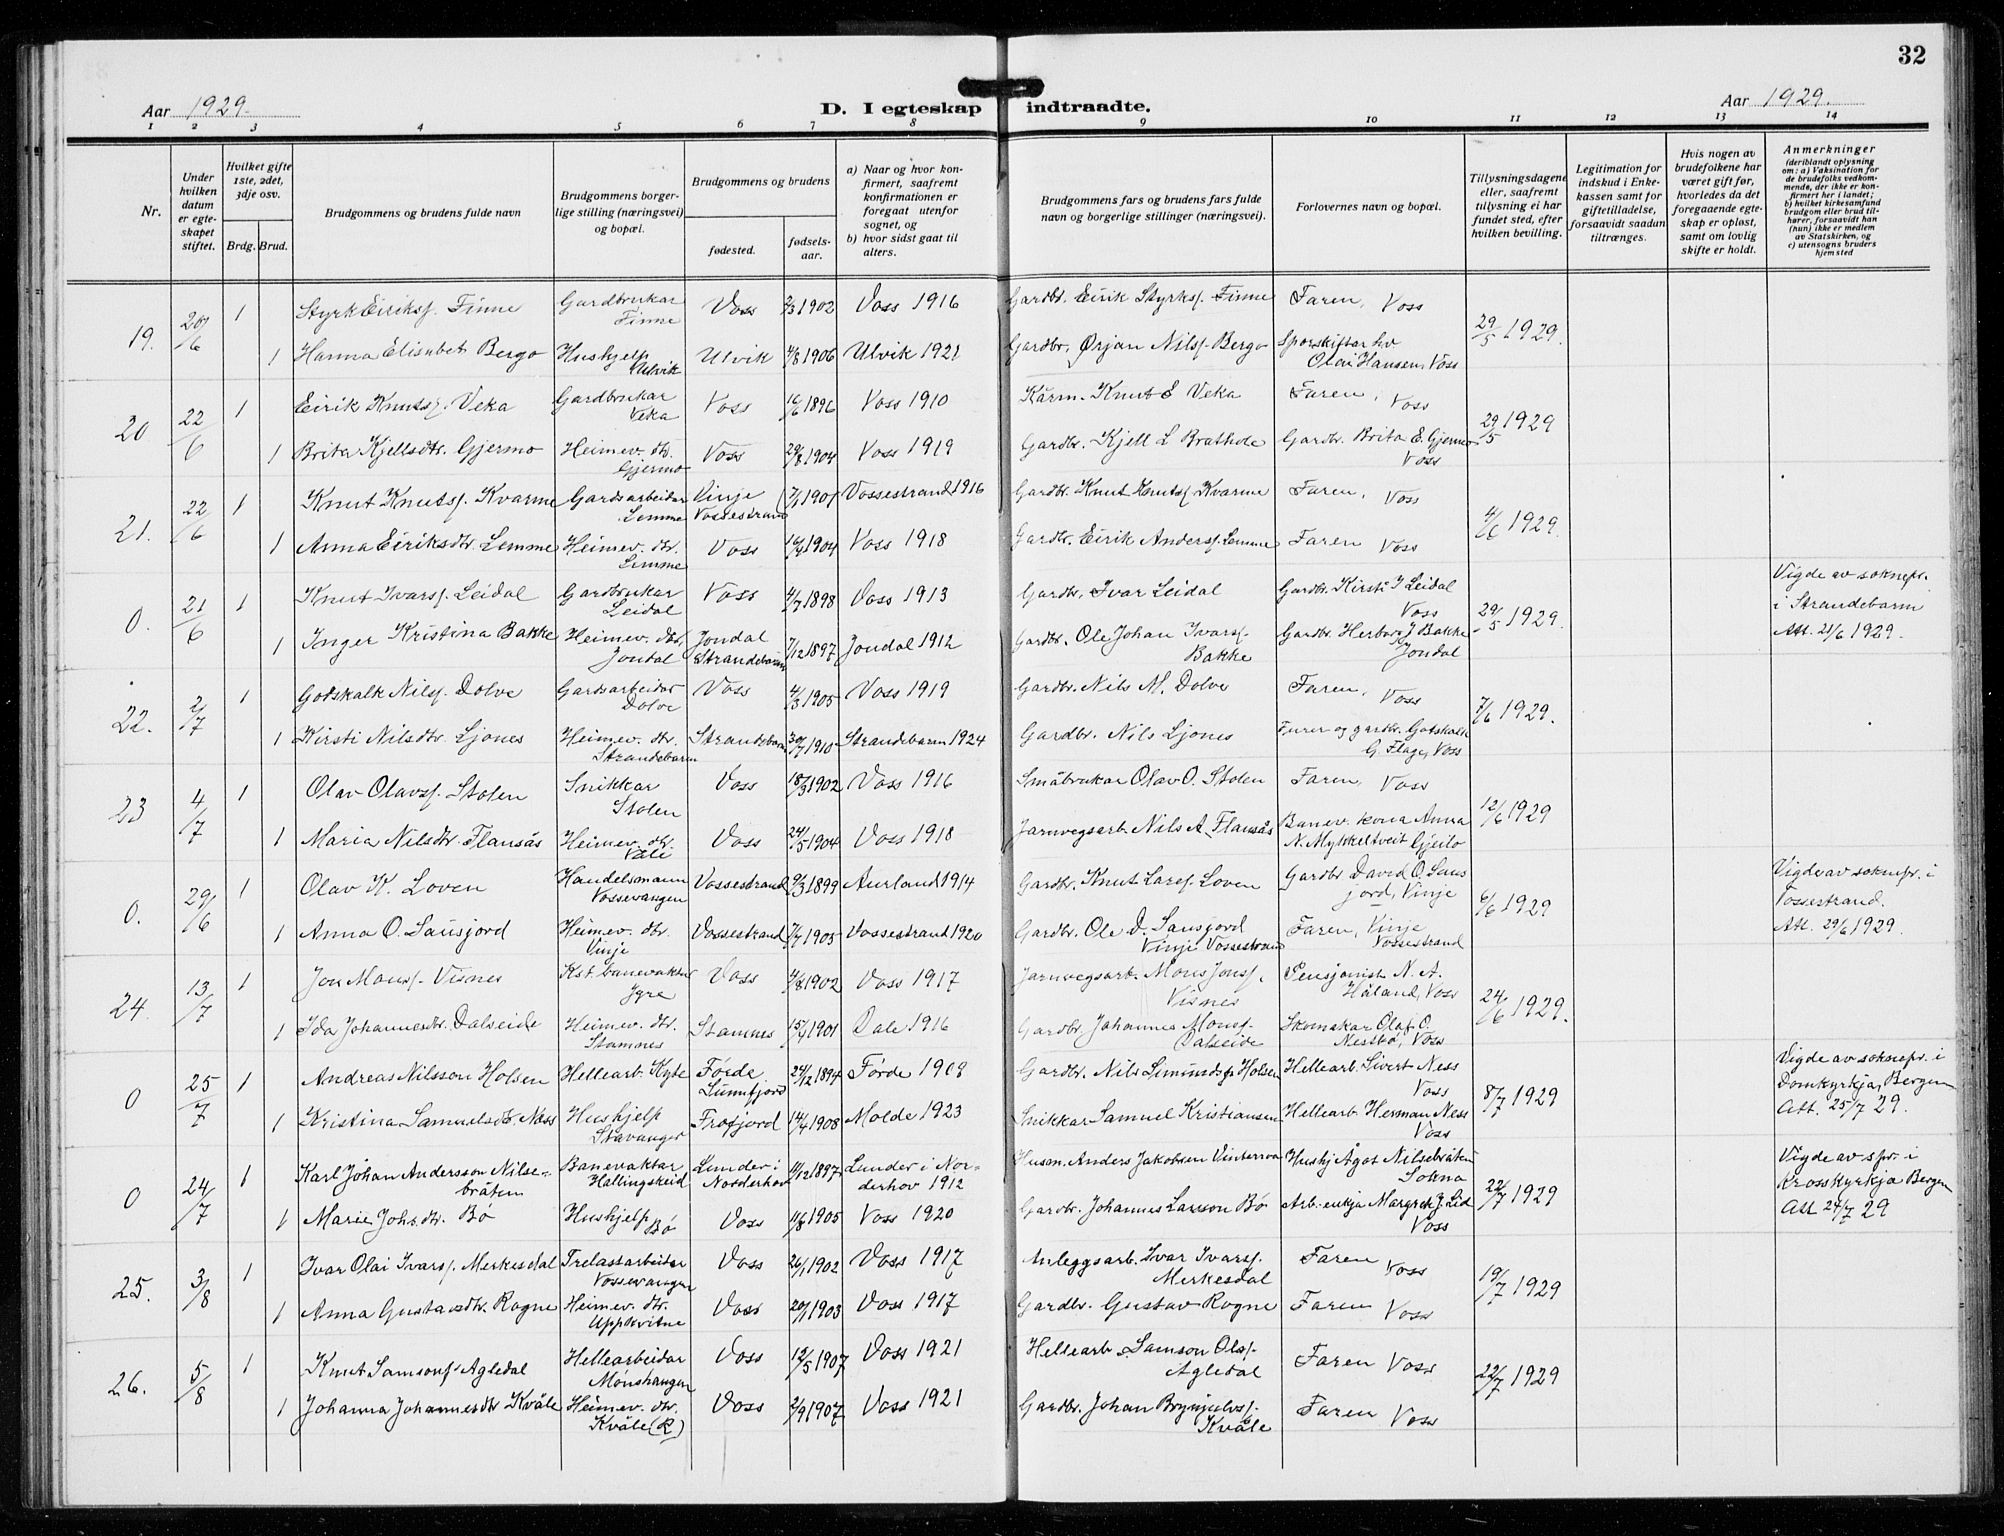 32
Aar 1929.
D. I egteskap indtraadte.
Aar 1929.
1 2 3 4 5 6 7 8 9 10 11 12 13 14
Nr.
Under hvilken datum er egteskapet stiftet.
Hvilket gifte 1ste, 2det, 3dje osv.
Brdg. Brud.
Brudgommens og brudens fulde navn
Brudgommens borgerlige stilling (næringsvei) og bopæl.
Brudgommens og brudens
fødested.
fødselsaar.
a) Naar og hvor konfirmert, saafremt konfirmationen er foregaat utenfor sognet, og
b) hvor sidst gaat til alters.
Brudgommens fars og brudens fars fulde navn og borgerlige stillinger (næringsvei).
Forlovernes navn og bopæl.
Tillysningsdagene eller, saafremt tillysning ei har fundet sted, efter hvilken bevilling.
Legitimation for indskud i Enkekassen samt for giftetilladelse, forsaavidt saadan tiltrænges.
Hvis nogen av brudefolkene har været gift før, hvorledes da det foregaaende egteskap er opløst, samt om lovlig skifte er holdt.
Anmerkninger (deriblandt oplysning om: a) Vaksination for de brudefolks vedkommende, der ikke er konfirmert her i landet; b) hvilket kirkesamfund brudgom eller brud tilhører, forsaavidt han (hun) ikke er medlem av Statskirken, og c) utensogns bruders hjemsted
19. 20/6 1 Styrk Eiriksf. Finne Gardbrukar Finne Voss 2/3 1902 Voss 1916 Gardbr. Eirik Styrksf. Finne Faren, Voss 29/5 1929.
1 Hanna Elisabet Bergo Hushjelp Ulvik Ulvik 4/8 1906 Ulvik 1921 Gardbr. Ørjan Nilsf. Bergo Sporskiftar hv Olai Hansen, Voss
20 22/6 1 Eirik Knutsf. Veka Gardbrukar Veka Voss 16/6 1896 Voss 1910 Kårm. Knut E Veka Faren, Voss 29/5 1929
1 Brita Kjellsdtr. Gjermo Heimev. dtr. Gjermo Voss 29/8 1904 Voss 1919 Gardbr. Kjell L Brathole Gardbr. Brita E. Gjermo Voss
21. 22/6 1 Knut Knutsf. Kvarme Gardsarbeidar Lemme Vinje Vossestrand 7/1 1901 Vossestrand 1916 Gardbr. Knut Knutsf Kvarme Faren, Voss 4/6 1929.
1 Anna Eiriksdtr. Lemme Heimev. dtr. Lemme Voss 16/4 1904 Voss 1918 Gardbr. Eirik Andersf. Lemme Faren Voss
0. 21/6 1 Knut Ivarsf. Leidal Gardbrukar Leidal Voss 4/7 1898 Voss 1913 Gardbr. Ivar Leidal Gardbr. Kirsti I Leidal Voss 29/5 1929. Vigde av soknepr. i Strandebarm Att. 21/6 1929.
1 Inger Kristina Bakke Heimev. dtr. Jondal Jondal Strandebarm 7/12 1897 Jondal 1912 Gardbr. Ole Johan Ivarsf. Bakke Gardbr. Herborg J Bakke Jondal
22. 2/7 1 Gotskalk Nilsf. Dolve Gardsarbeidar Dolve Voss 4/3 1905 Voss 1919 Gardbr. Nils M. Dolve Faren, Voss 7/6 1929.
1 Kirsti Nilsdtr. Ljones Heimev. dtr. Strandebarm Strandebarm 30/7 1910 Strandebarm 1924 Gardbr. Nils Ljones Furer og gardbr. Gotskalk G. Flage, Voss
23 4/7 1 Olav Olavsf. Stolen Snikkar Stolen Voss 18/3 1902 Voss 1916 Småbrukar Olav O. Stolen Faren, Voss 12/6 1929
1 Maria Nilsdtr. Flansås Heimev. dtr. Väle Voss 24/5 1904 Voss 1918 Jarnvegsarb. Nils A. Flansås Banev. kona Anna N. Mykkeltveit Gjeilo
0. 29/6 1 Olav K. Loven Handelsmann Vossevangen Vossestrand 9/3 1899 Aurland 1914 Gardbr. Knut Larsf. Loven Gardbr David O. Sausjord, Vinje 6/6 1929 Vigde av soknepr. i Vossestrand. Att. 29/6 1929.
1 Anna O. Sausjord Heimev. dtr. Vinje Vossestrand 7/7 1905 Vossestrand 1920 Gardbr. Ole D. Sausjord Vinje Vossestrand Faren, Vinje Vossestrand
24. 13/7 1 Jon Monsf. Visnes Kst. banevaktar Ygre Voss 4/8 1902 Voss 1917 Jarnvegsarb. Mons Jonsf. Visnes Pensjonist N. A. Håland, Voss 24/6 1929.
1 Ida Johannesdtr. Dalseide Heimev. dtr. Stamnes Stamnes 15/1 1901 Dale 1916 Gardbr. Johannes Monsf. Dalseide Skomakar Olaf O. Nesstø, Voss
0 25/7 1 Andreas Nilsson Holsen Hellearb. Kyte Førde Sunnfjord 24/12 1894 Førde 1909 Gardbr. Nils Simundsf. Holsen Hellearb. Sivert Ness Voss 8/7 1929 Vigde av soknepr. i Domkyrkja, Bergen Att. 25/7 29.
1 Kristina Samuelsdtr. Ness Hushjelp Stavanger Frøfjord 14/4 1908 Molde 1923 Snikkar Samuel Kristiansen Hellearb. Herman Ness Voss
0 24/7 1 Karl Johan Andersson Nilsebråten Banevaktar Hallingskeid Lunder i Norderhov 11/12 1897 Lunder i Norderhov 1912 Husm. Anders Jakobsen Vinterroa Hushj Ågot Nilsebråten Sokna 22/7 1929 Vigde av spr. i Krosskyrkja Bergen Att 24/7 29
1 Marie Johs. dtr. Bø Hushjelp Bø Voss 11/8 1905 Voss 1920 Gardbr. Johannes Larsson Bø Arb. enkja Margrete J. Lid Voss
25. 3/8 1 Ivar Olai Ivarsf. Merkesdal Trelastarbeidar Vossevangen Voss 26/1 1902 Voss 1917 Anleggsarb. Ivar Ivarsf. Merkesdal Faren Voss 19/7 1929
1 Anna Gustavsdtr. Rogne Heimev. dtr. Uppkvitne Voss 20/1 1903 Voss 1917 Gardbr. Gustav Rogne Faren Voss
26. 5/8 1 Knut Samsonsf. Agledal Hellearbeidar Mønshaugen Voss 12/5 1907 Voss 1921 Hellearb. Samson Olsf. Agledal Faren Voss 22/7 1929
1 Johanna Johannesdtr Kvåle Heimev. dtr. Kvåle (R) Voss 2/9 1907 Voss 1921 Gardbr. Johan Brynjulvsf. Kvåle Faren Voss